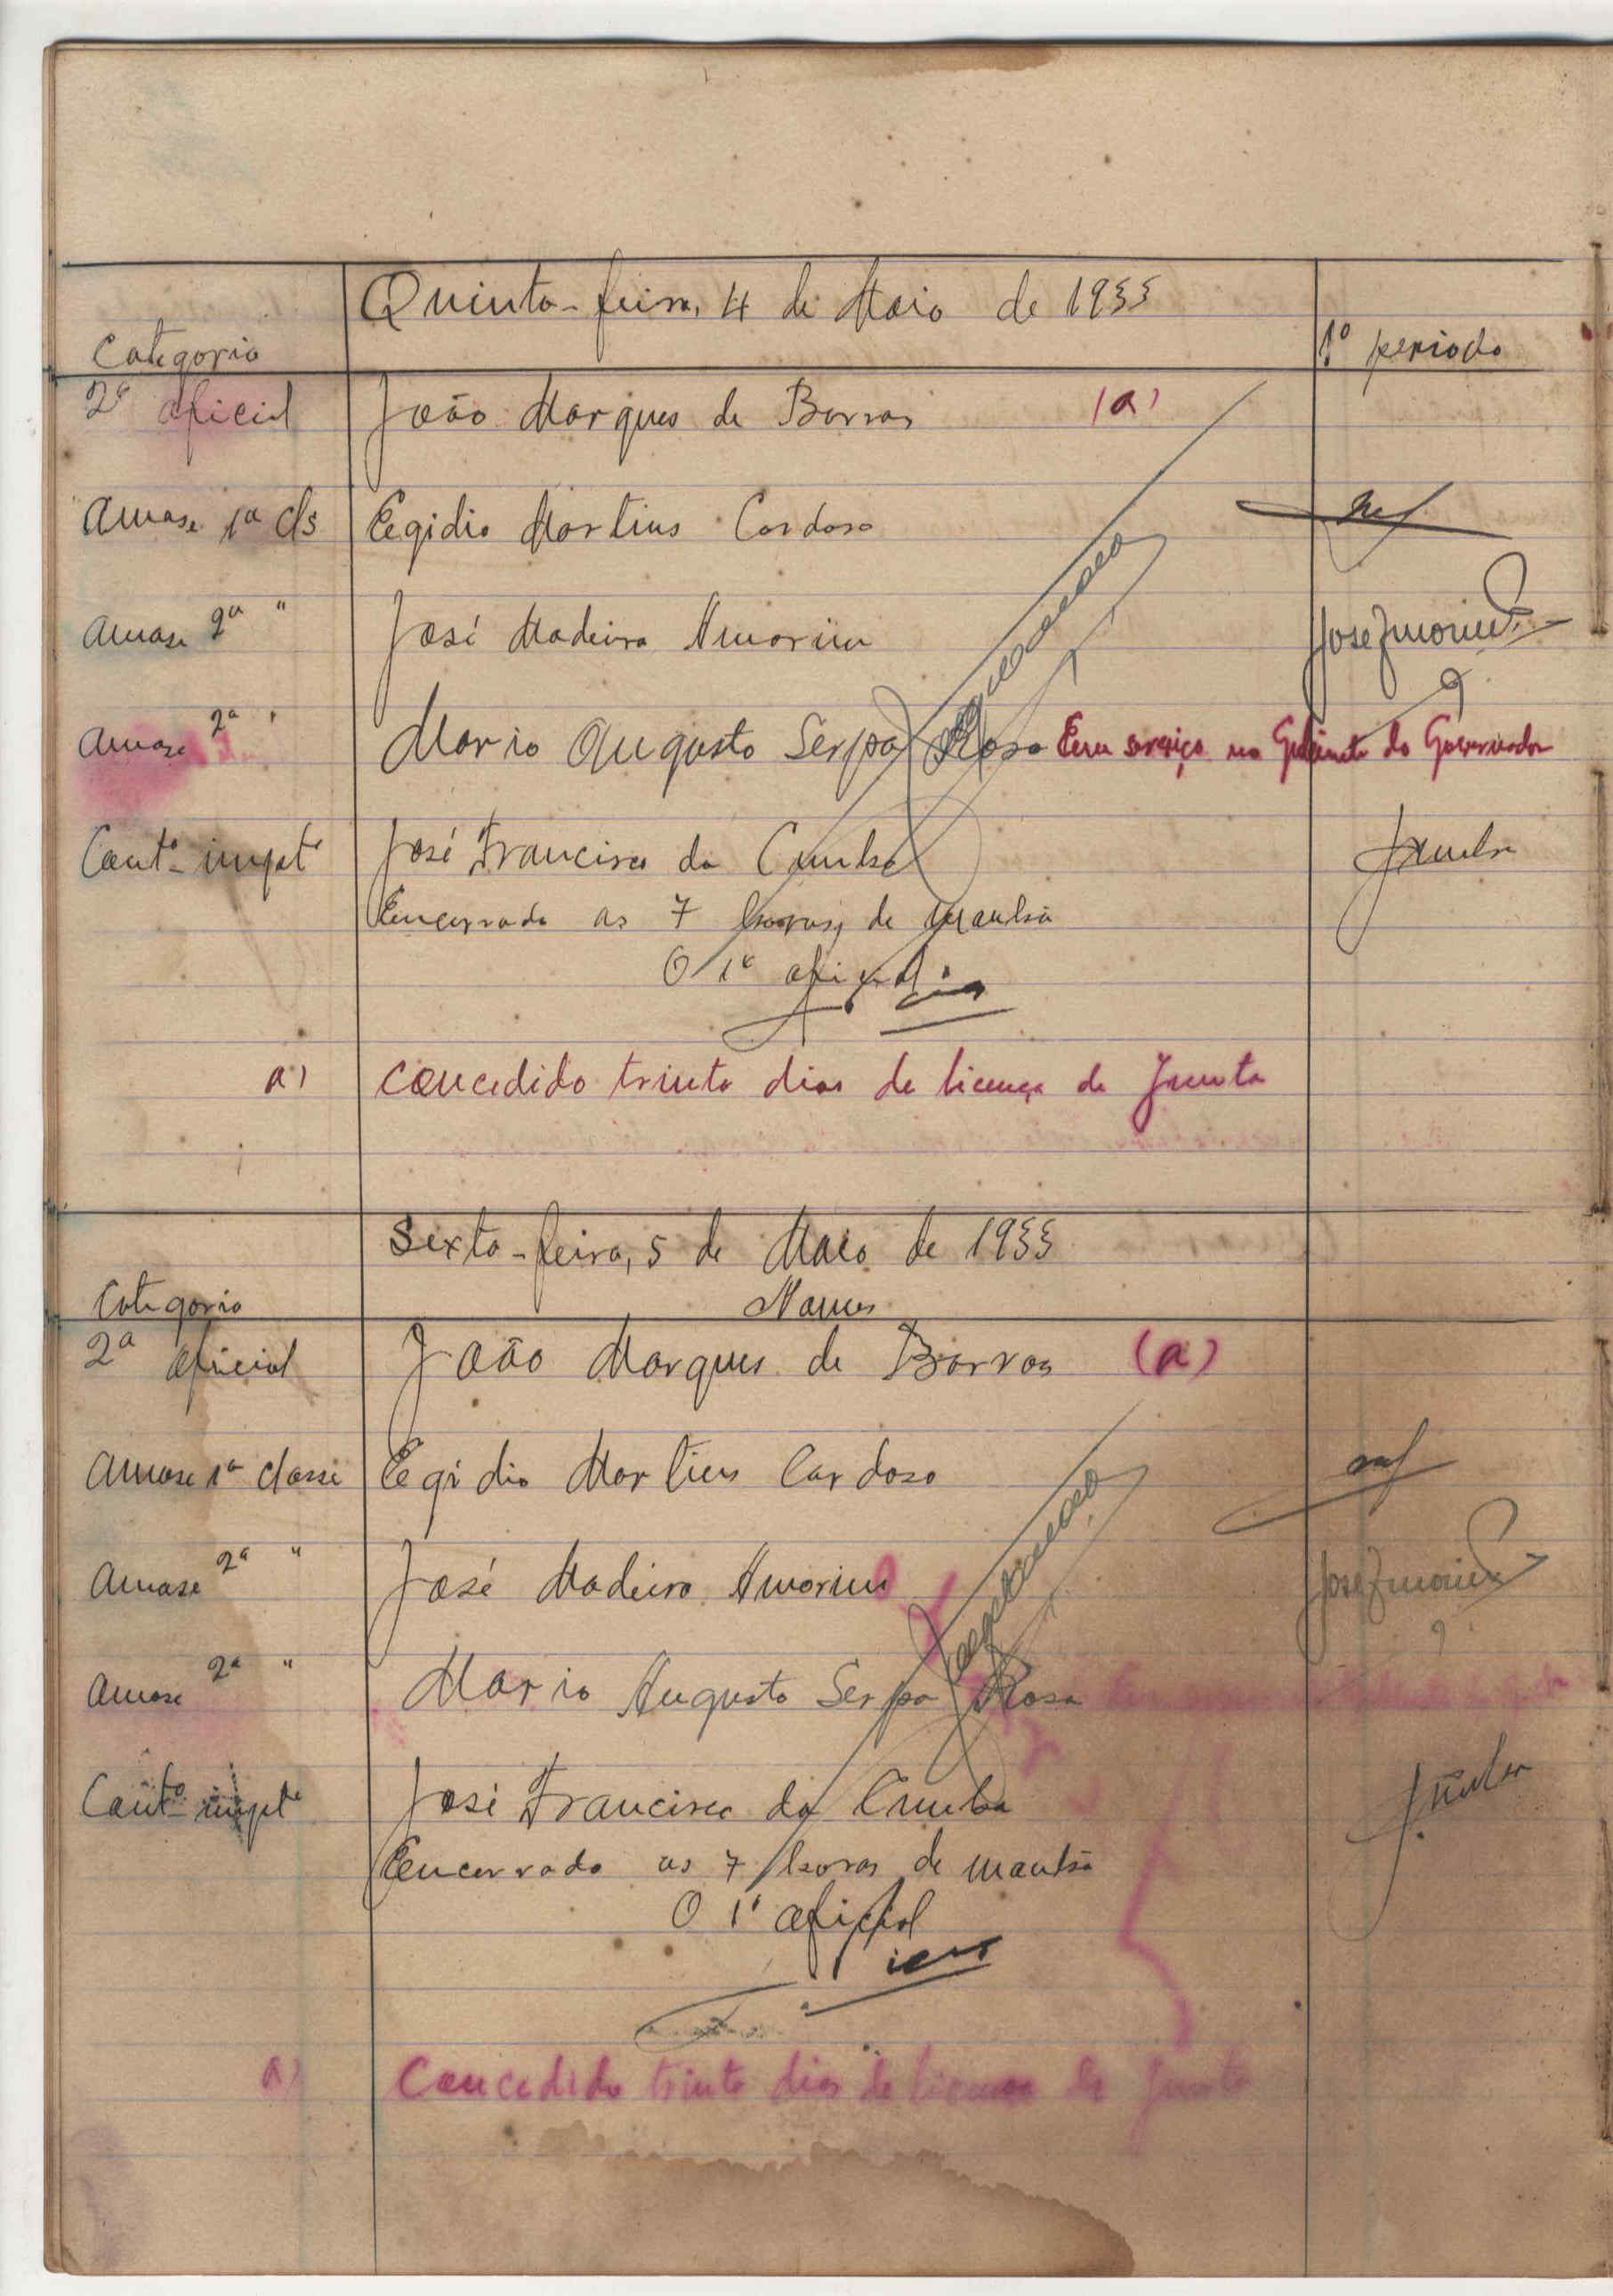 Quinta-feira, 4 de Maio de 1933
Categoria 1º periodo
2º oficial João Marques de Barros (a)
Amase 1ª cls Egidio Martins Cardoso
Amase 2ª " José Madeira Amorim JoseAmorim
Amase 2ª " Mario Augusto Serpa Rosa Em serviço no Gabinete do Governador
Contº impte José Francisco da Cunha JCunha
Encerrado as 7 horas, de manhã
O 1º oficial
a) Concedido trinta dias de licença da Junta
Sexta-feira, 5 de Maio de 1933
Categoria Nomes
2º oficial João Marques de Barros (a)
Amase 1ª classe Egidio Martins Cardoso
Amase 2ª " José Madeira Amorim JoseAmorim
Amase 2ª " Mario Augusto Serpa Rosa
Contº impte José Francisco da Cunha JCunha
Encerrado as 7 horas de manhã
O 1º oficial
a) Concedido trinta dias de licença da Junta